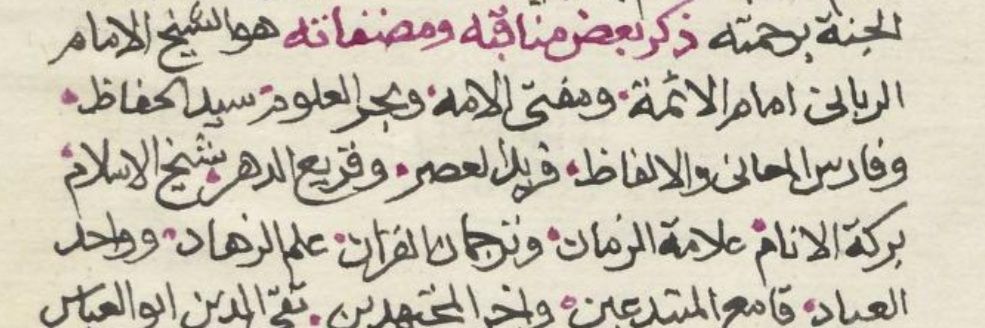 الجنة برحمته ذكر بعض مناقبه ومصنفاته هو الشيخ الامام
الربانى امام الائمة ومفتى الامه وبحر العلوم سيد الحفاظ
وفارس المعانى والالفاظ فريد العصر وقريع الدهر شيخ الاسلام
بركة الانام علامة الزمان وترجمان القران علم الزهاد وواحد
العباد قامع المبتدعين واخر المجتهدين تقى الدين ابو العباس